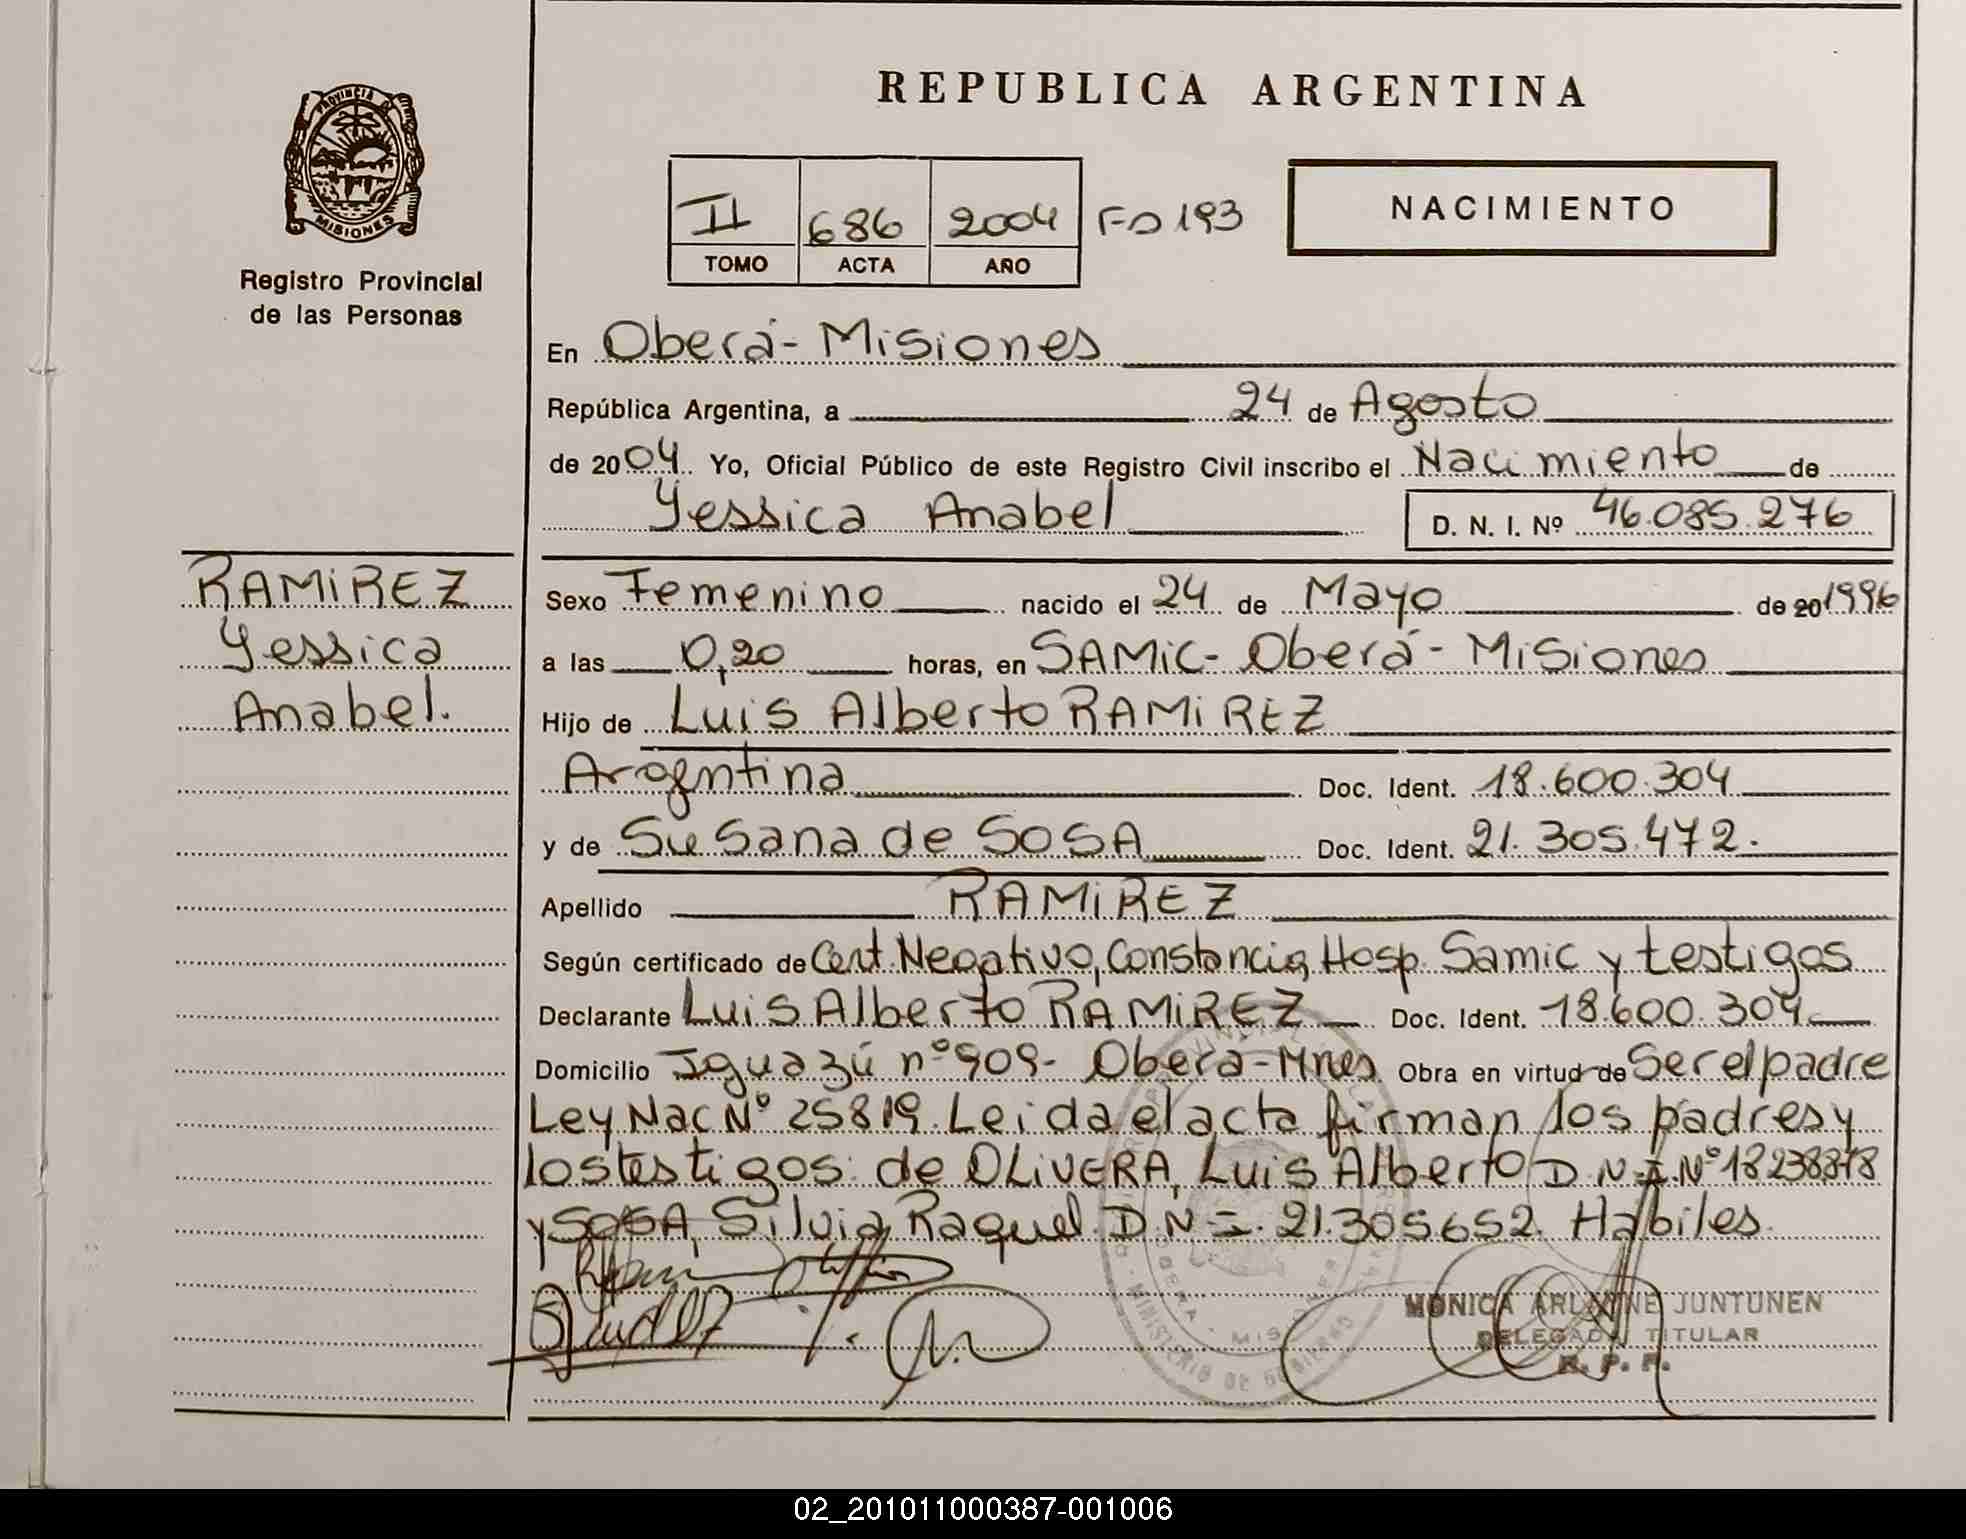 REPUBLICA ARGENTINA
PROVINCIA DE
MISIONES
Registro Provincial
de las Personas
II 686 2004 Fo 193
TOMO ACTA AÑO
NACIMIENTO
En Oberá - Misiones
República Argentina, a 24 de Agosto
de 2004 Yo, Oficial Público de este Registro Civil inscribo el Nacimiento de
Yessica Anabel D. N. I. Nº 46.085.276
RAMIREZ
Yessica
Anabel.
Sexo Femenino nacido el 24 de Mayo de 20 1996
a las 0,20 horas, en SAMIC - Oberá - Misiones
Hijo de Luis Alberto RAMIREZ
Argentina Doc. Ident. 18.600.304
y de Susana de SOSA Doc. Ident. 21.305.472.
Apellido RAMIREZ
Según certificado de Cert. Negativo, Constancia, Hosp. Samic y testigos
Declarante Luis Alberto RAMIREZ Doc. Ident. 18.600.304
Domicilio Iguazú nº 909 - Oberá - Mnes Obra en virtud de Ser el padre
Ley Nac Nº 25819. Leida el acta firman los padres y
los testigos: de OLIVERA, Luis Alberto D.N.I.Nº 18238878
y SOSA, Silvia Raquel D.N.I. 21.305652. Habiles.
MONICA ARLYNNE JUNTUNEN
DELEGADA TITULAR
R. P. P.
MINISTERIO DE GOBIERNO
02_201011000387-001006